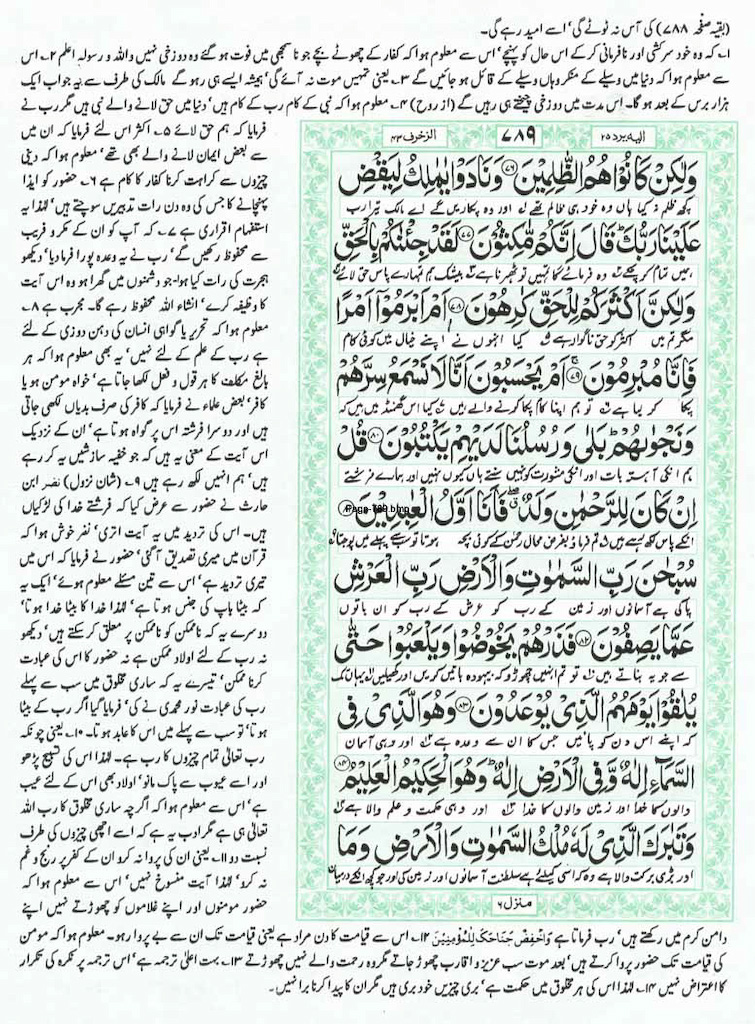 (بقیہ صفحہ ۷۸۸) کی آس نہ ٹوٹے گی' اسے امید رہے گی۔
۱۔ کہ وہ خود سرکشی اور نافرمانی کر کے اس حال کو پہنچے' اس سے معلوم ہوا کہ کفار کے چھوٹے بچے جو ناسمجھی میں فوت ہو گئے وہ دوزخی نہیں واللہ و رسولہ اعلم ۲۔ اس
سے معلوم ہوا کہ دنیا میں وسیلے کے منکر وہاں وسیلے کے قائل ہو جائیں گے ۳۔ یعنی تمہیں موت نہ آئے گی' ہمیشہ ایسے ہی رہو گے مالک کی طرف سے یہ جواب ایک
ہزار برس کے بعد ہو گا۔ اس مدت میں دوزخی چیختے ہی رہیں گے (از روح) ۴۔ معلوم ہوا کہ نبی کے کام رب کے کام ہیں' دنیا میں حق لانے والے نبی ہیں مگر رب نے
الیہ یرد ۲۵
۷۸۹
الزخرف ۴۳
وَلٰكِنْ كَانُوْا هُمُ الظّٰلِمِيْنَ ۷۶ وَنَادَوْا يٰمٰلِكُ لِيَقْضِ
کچھ ظلم نہ کیا ہاں وہ خود ہی ظالم تھے اور وہ پکاریں گے اے مالک تیرا رب
عَلَيْنَا رَبُّكَ قَالَ اِنَّكُمْ مّٰكِثُوْنَ ۷۷ لَقَدْ جِئْنٰكُمْ بِالْحَقِّ
ہمیں تمام کر چکے وہ فرمائے گا تمہیں تو ٹھہرنا ہے بیشک ہم تمہارے پاس حق لائے
وَلٰكِنَّ اَكْثَرَكُمْ لِلْحَقِّ كٰرِهُوْنَ ۷۸ اَمْ اَبْرَمُوْٓا اَمْرًا
مگر تم میں اکثر کو حق ناگوار ہے کیا انہوں نے اپنے خیال میں کوئی کام
فَاِنَّا مُبْرِمُوْنَ ۷۹ اَمْ يَحْسَبُوْنَ اَنَّا لَا نَسْمَعُ سِرَّهُمْ
پکا کر لیا ہے تو ہم اپنا کام پکا کرنے والے ہیں کیا اس گھمنڈ میں ہیں کہ
وَنَجْوٰىهُمْ بَلٰى وَرُسُلُنَا لَدَيْهِمْ يَكْتُبُوْنَ ۸۰ قُلْ
ہم انکی آہستہ بات اور انکی مشورت نہیں سنتے ہاں کیوں نہیں اور ہمارے فرشتے
اِنْ كَانَ لِلرَّحْمٰنِ وَلَدٌ فَاَنَا اَوَّلُ الْعٰبِدِيْنَ
Page-789.bmp
انکے پاس لکھ رہے ہیں تم فرماؤ بفرض محال رحمٰن کے کوئی بچہ ہوتا تو سب سے پہلے میں پوجتا
سُبْحٰنَ رَبِّ السَّمٰوٰتِ وَالْاَرْضِ رَبِّ الْعَرْشِ
پاکی ہے آسمانوں اور زمین کے رب کو عرش کے رب کو ان باتوں
عَمَّا يَصِفُوْنَ ۸۲ فَذَرْهُمْ يَخُوْضُوْا وَيَلْعَبُوْا حَتّٰى
سے جو یہ بناتے ہیں تو تم انہیں چھوڑو کہ بیہودہ باتیں کریں اور کھیلیں یہاں تک
يُلٰقُوْا يَوْمَهُمُ الَّذِيْ يُوْعَدُوْنَ ۸۳ وَهُوَ الَّذِيْ فِي
کہ اپنے اس دن کو پائیں جس کا ان سے وعدہ ہے اور وہی آسمان
السَّمَآءِ اِلٰهٌ وَّفِي الْاَرْضِ اِلٰهٌ وَهُوَ الْحَكِيْمُ الْعَلِيْمُ ۸۴
والوں کا خدا اور زمین والوں کا خدا اور وہی حکمت و علم والا ہے
وَتَبٰرَكَ الَّذِيْ لَهٗ مُلْكُ السَّمٰوٰتِ وَالْاَرْضِ وَمَا
اور بڑی برکت والا ہے وہ کہ اسی کیلئے ہے سلطنت آسمانوں اور زمین کی اور جو کچھ انکے درمیان
منزل ۶
فرمایا کہ ہم حق لائے ۵۔ اکثر اس لئے فرمایا کہ ان میں
سے بعض ایمان لانے والے بھی تھے' معلوم ہوا کہ دینی
چیزوں سے کراہت کرنا کفار کا کام ہے ۶۔ حضور کو ایذا
پہنچانے کا جس کی وہ دن رات تدبیریں سوچتے ہیں' لہٰذا یہ
استفہام اقراری ہے ۷۔ کہ آپ کو ان کے مکر و فریب
سے محفوظ رکھیں گے' رب نے یہ وعدہ پورا فرمادیا' دیکھو
ہجرت کی رات کیا ہوا۔ جو دشمنوں میں گھرا ہو وہ اس آیت
کا وظیفہ کرے' انشاء اللہ محفوظ رہے گا۔ مجرب ہے ۸۔
معلوم ہوا کہ تحریر یا گواہی انسان کی دہن دوزی کے لئے
ہے رب کے علم کے لئے نہیں' یہ بھی معلوم ہوا کہ ہر
بالغ مکلف کا ہر قول و فعل لکھا جاتا ہے' خواہ مومن ہو یا
کافر' بعض علماء نے فرمایا کہ کافر کی صرف بدیاں لکھی جاتی
ہیں اور دوسرا فرشتہ اس پر گواہ ہوتا ہے' ان کے نزدیک
اس آیت کے معنی یہ ہیں کہ جو خفیہ سازشیں یہ کر رہے
ہیں' ہم انہیں لکھ رہے ہیں ۹۔ (شان نزول) نضر ابن
حارث نے حضور سے عرض کیا کہ فرشتے خدا کی لڑکیاں
ہیں۔ اس کی تردید میں یہ آیت اتری' نضر خوش ہوا کہ
قرآن میں میری تصدیق آگئی' حضور نے فرمایا کہ اس میں
تیری تردید ہے' اس سے تین مسئلے معلوم ہوئے' ایک یہ
کہ بیٹا باپ کی جنس ہوتا ہے' لہٰذا خدا کا بیٹا خدا ہوتا'
دوسرے یہ کہ ناممکن کو ناممکن پر معلق کر سکتے ہیں' دیکھو
نہ رب کے لئے اولاد ممکن ہے نہ حضور کا اس کی عبادت
کرنا ممکن' تیسرے یہ کہ ساری مخلوق میں سب سے پہلے
رب کی عبادت نور محمدی نے کی' فرمایا گیا اگر رب کے بیٹا
ہوتا' تو سب سے پہلے میں اس کا عابد ہوتا۔ ۱۰۔ یعنی چونکہ
رب تعالیٰ تمام چیزوں کا رب ہے۔ لہٰذا اس کی تسبیح پڑھو
اور اسے عیوب سے پاک مانو' اولاد بھی اس کے لئے عیب
ہے' اس سے معلوم ہوا کہ اگرچہ ساری مخلوق کا رب اللہ
تعالیٰ ہی ہے مگر ادب یہ ہے کہ اسے اچھی چیزوں کی طرف
نسبت دو ۱۱۔ یعنی ان کی پروا نہ کرو ان کے کفر پر رنج و غم
نہ کرو' لہٰذا آیت منسوخ نہیں' اس سے معلوم ہوا کہ
حضور مومنوں اور اپنے غلاموں کو چھوڑتے نہیں اپنے
دامن کرم میں رکھتے ہیں' رب فرماتا ہے وَاخْفِضْ جَنَاحَكَ لِلْمُؤْمِنِيْنَ ۱۲۔ اس سے قیامت کا دن مراد ہے یعنی قیامت تک ان سے بے پروا رہو۔ معلوم ہوا کہ مومن
کی قیامت تک حضور پروا کرتے ہیں' بعد موت سب عزیز و اقارب چھوڑ جاتے مگر وہ رحمت والے نہیں چھوڑتے ۱۳۔ بہت اعلیٰ ترجمہ ہے' اس ترجمہ پر نکرہ کی تکرار
کا اعتراض نہیں ۱۴۔ لہٰذا اس کی ہر مخلوق میں حکمت ہے' بری چیزیں خود بری ہیں مگر ان کا پیدا کرنا برا نہیں۔